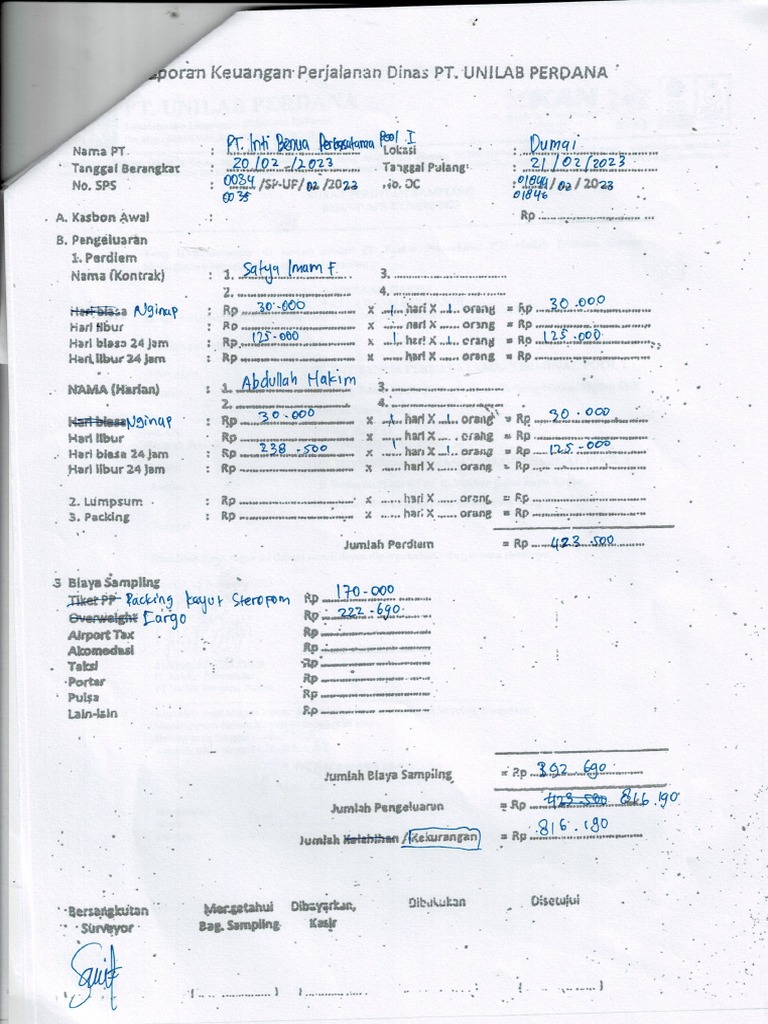 aporan Keuangan Perjalanan Dinas PT. UNILAB PERDANA
Nama PT. : PT. Inti Benua Perkasatama Pool I Lokasi : Dumai
Tanggal Berangkat : 20/02/2023 Tanggal Pulang : 21/02/2023
No. SPS : 0034 /SP-UF/02/2023 No. OC : 01844/02/2023
0035 01846
A. Kasbon Awal : Rp
B. Pengeluaran
1. Perdiem
Nama (Kontrak) : 1. Satya Imam F. 3.
2. 4.
Hari biasa Nginap : Rp 30.000 x 1 hari X 1 orang = Rp 30.000
Hari libur : Rp x hari X orang = Rp
Hari biasa 24 jam : Rp 125.000 x 1 hari X 1 orang = Rp 125.000
Hari libur 24 jam : Rp x hari X orang = Rp
NAMA (Harian) : 1. Abdullah Hakim 3.
2. 4.
Hari biasa Nginap : Rp 30.000 x 1 hari X 1 orang = Rp 30.000
Hari libur : Rp x hari X orang = Rp
Hari biasa 24 jam : Rp 238.500 x 1 hari X 1 orang = Rp 125.000
Hari libur 24 jam : Rp x hari X orang = Rp
2. Lumpsum : Rp x hari X orang = Rp
3. Packing : Rp x hari X orang = Rp
Jumlah Perdiem = Rp 423.500
3 Biaya Sampling
Tiket PP Packing kayu+ Sterofom Rp 170.000
Overweight Cargo Rp 222.690
Airport Tax Rp
Akomodasi Rp
Taksi Rp
Porter Rp
Pulsa Rp
Lain-lain Rp
Jumlah Biaya Sampling = Rp 392.690
Jumlah Pengeluaran = Rp 423.500 816.190
Jumlah Kelebihan / Kekurangan = Rp 816.190
Bersangkutan Mengetahui Dibayarkan, Dibukukan Disetujui
Surveyor Bag. Sampling Kasir